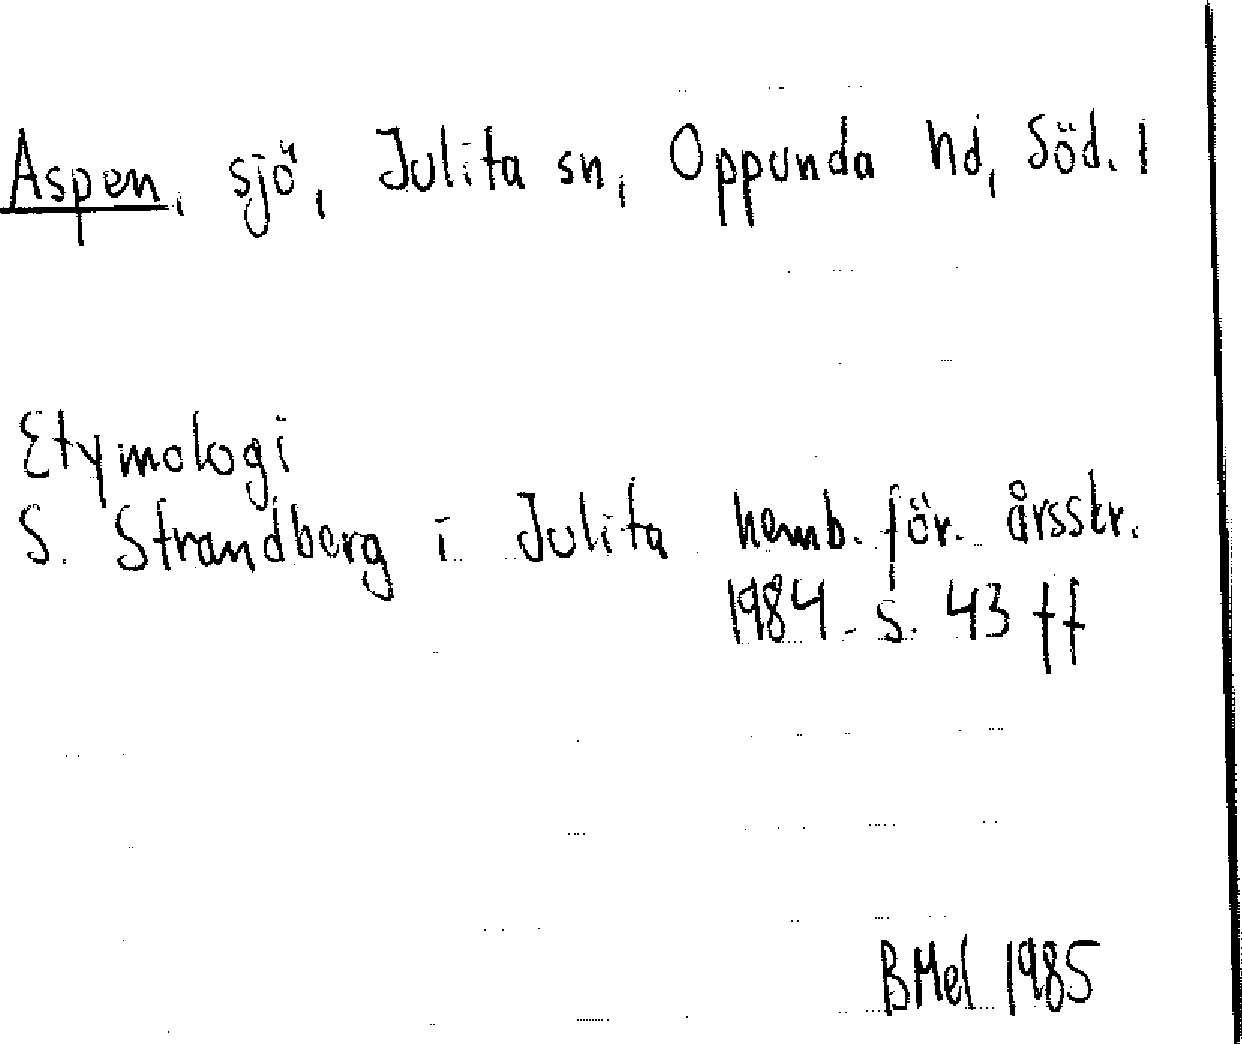 Aspen, sjö, Julita sn, Oppunda hd, Söd. l
Etymologi
S. Strandberg i Julita hemb. för. årsskr.
1984. s. 43 ff
BMel 1985